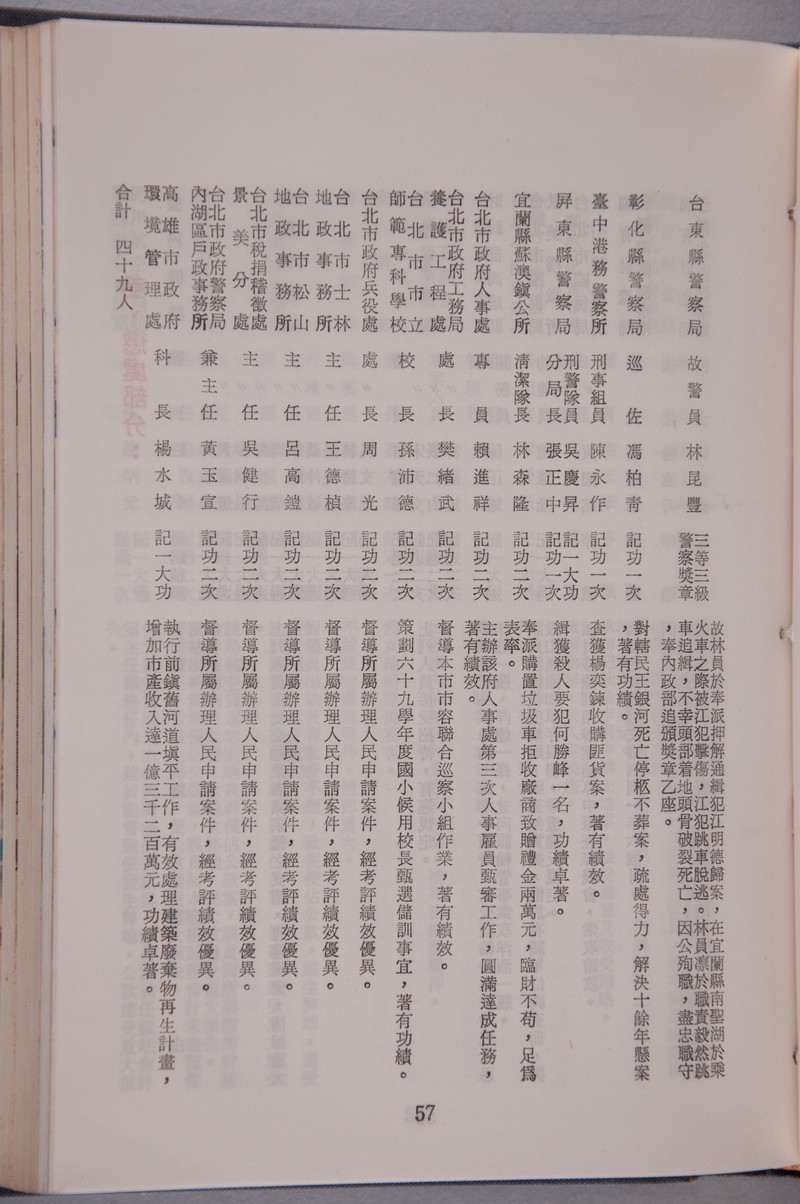 台東縣警察局 故警員 林昆豐 三等三級警察獎章 故林員於奉派押解通緝犯江明德歸案，在宜蘭縣南聖湖於乘
火車之際被江犯擊傷，江犯跳車脫逃。林員凛於職責毅然跳
車追緝，不幸頭部着地頭骨破裂死亡，因公殉職，盡忠職守
，奉內政部追頒獎章乙座。
彰化縣警察局 巡佐 馮柏青 記功一次 對轄民王銀河死亡停柩不葬案，疏處得力，解決十餘年懸案
，著有功績。
臺中港務警察所 刑事組員 陳永作 記功一次 查獲楊奕鍊收購匪貨案，著有績效。
屏東縣警察局 刑警隊員 吳慶昇 記一大功
分局長 張正中 記功一次 緝獲殺人要犯何勝峰一名，功績卓著。
宜蘭縣蘇澳鎮公所 清潔隊長 林森隆 記功二次 奉派購置垃圾車拒收廠商致贈禮金兩萬元，臨財不苟，足為
表率。
台北市政府人事處 專員 賴進祥 記功二次 主辦該府人事處第三次人事雇員甄審工作，圓滿達成任務，
著有績效。
台北市政府工務局養護工程處 處長 樊緒武 記功二次 督導本市市容聯合巡察小組作業，著有績效。
台北市市立師範專科學校 校長 孫沛德 記功二次 策劃六十九學年度國小候用校長甄選儲訓事宜，著有功績。
台北市政府兵役處 處長 周光 記功二次 督導所屬辦理人民申請案件，經考評績效優異。
台北市士林地政事務所 主任 王德楨 記功二次 督導所屬辦理人民申請案件，經考評績效優異。
台北市松山地政事務所 主任 呂高鎧 記功二次 督導所屬辦理人民申請案件，經考評績效優異。
台北市稅捐稽徵處景美分處 主任 吳健行 記功二次 督導所屬辦理人民申請案件，經考評績效優異。
台北市政府警察局內湖區戶政事務所 兼主任 黃玉宣 記功二次 督導所屬辦理人民申請案件，經考評績效優異。
高雄市政府環境管理處 科長 楊水城 記一大功 執行前鎮舊河道填平工作，有效處理建築廢棄物再生計畫，
增加市產收入達一億三千二百萬元，功績卓著。
合計 四十九人
57